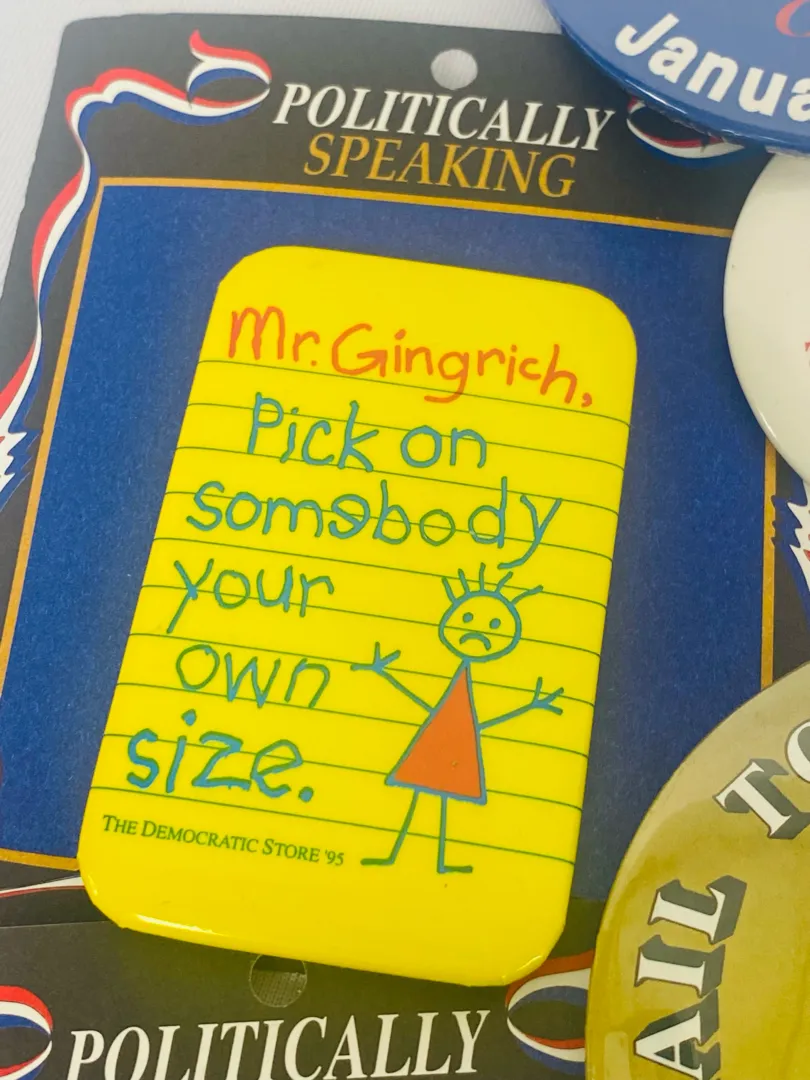 POLITICALLY
SPEAKING
Mr. Gingrich,
Pick on
somebody
your
own
size.
THE DEMOCRATIC STORE '95
POLITICALLY